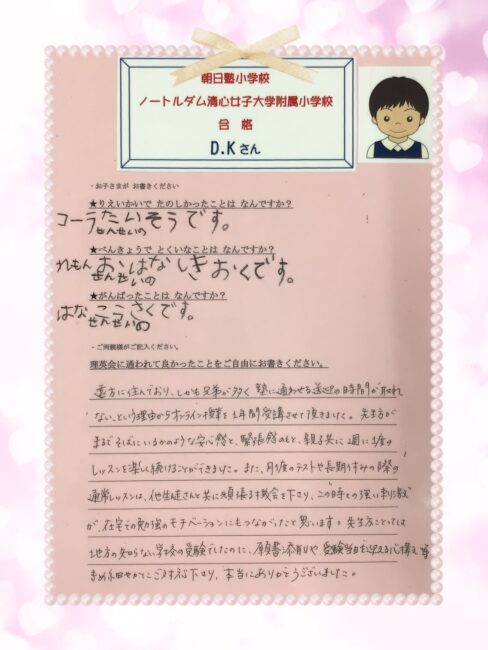 朝日塾小学校
ノートルダム清心女子大学附属小学校
合格
D.Kさん
・お子さまが お書きください
★りえいかいで たのしかったことは なんですか?
コーラせんせいの たいそうです。
★べんきょうで とくいなことは なんですか?
れもんせんせいの おはなしきおくです。
★がんばったことは なんですか?
はなせんせいの こうさくです。
・ご両親様がご記入ください。
理英会に通われて良かったことをご自由にお書きください。
遠方に住んでおり、しかも兄弟が多く 塾に通わせる送迎の時間が取れ
ない、という理由からオンライン授業を1年間受講させて頂きました。先生方が
まるでそばにいるかのような安心感と、緊張感のもと、親子共に週に1度の
レッスンを楽しく続けることができました。また、月1度のテストや長期休みの際の
通常レッスンは、他生徒さんと共に頑張る機会を下さり、この時の強い刺激
が、在宅での勉強のモチベーションにもつながったと思います。先生方にとっては
地方の知らない学校の受験でしたのに、願書添削や 受験当日を迎える心構え等
きめ細やかにご対応下さり、本当にありがとうございました。